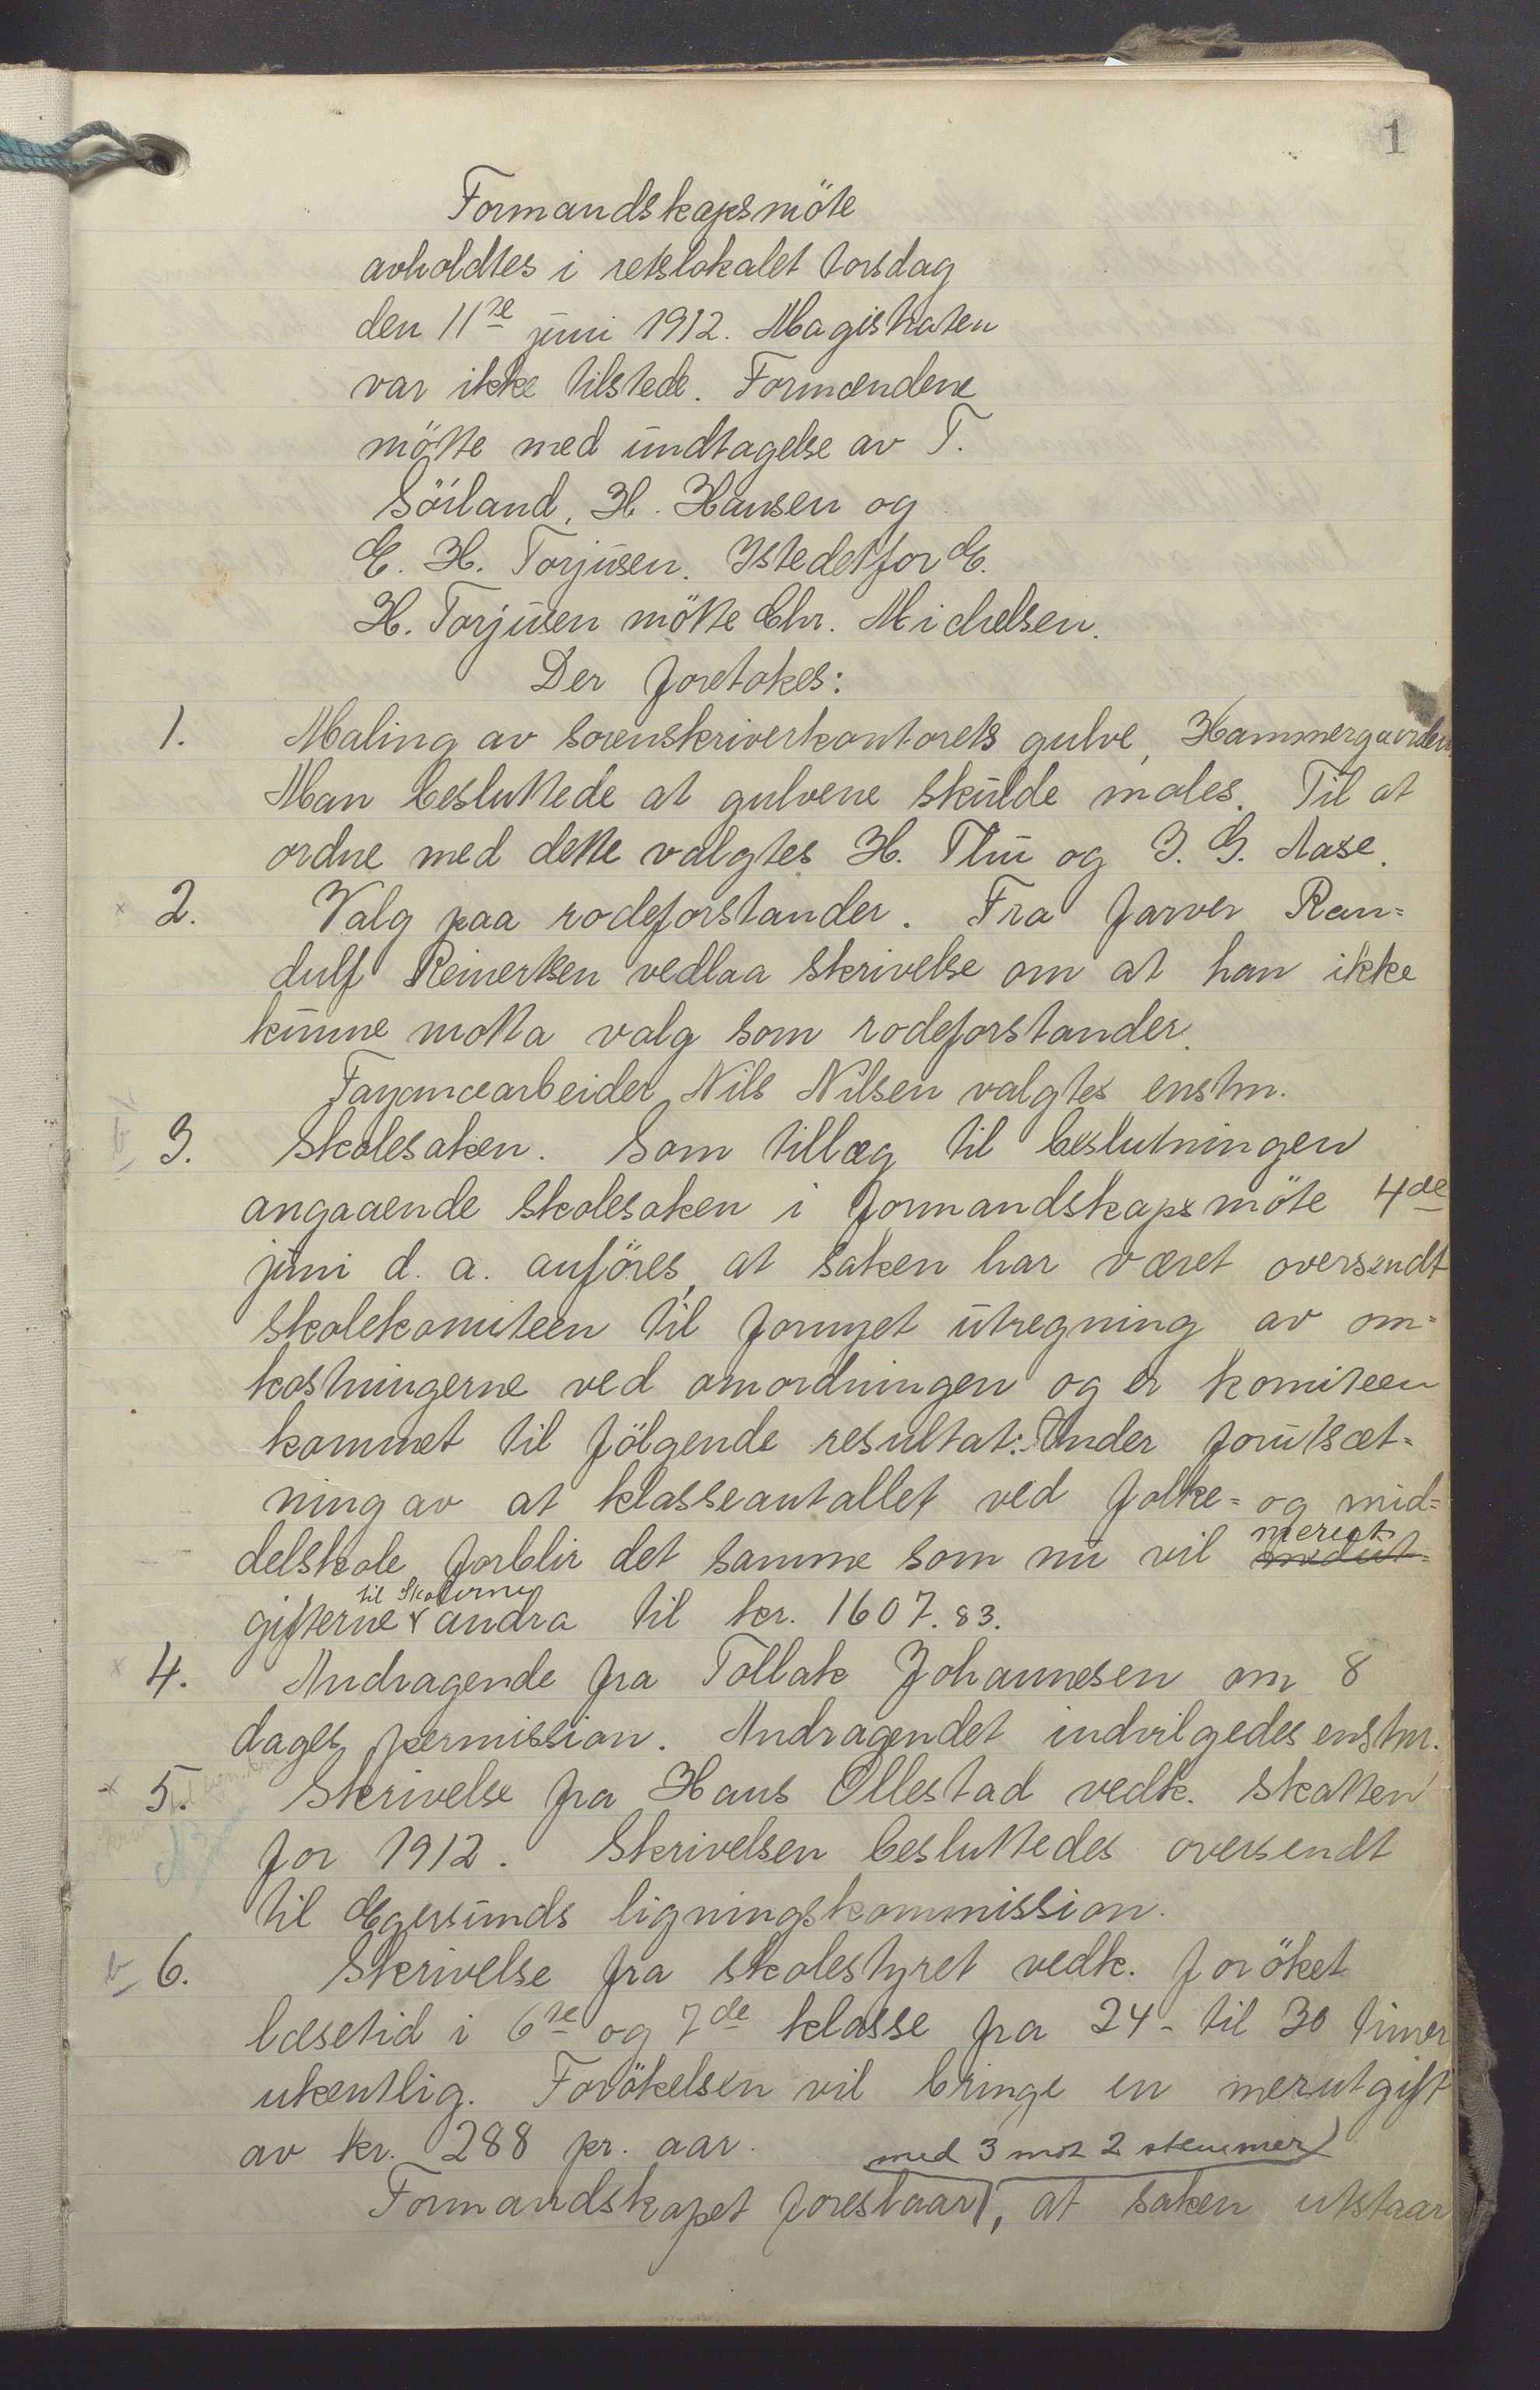 1
Formandskapsmöte
avholdtes i retslokalet torsdag
den 11te juni 1912. Magistraten
var ikke tilstede. Formændene
mötte med undtagelse av T.
Söiland, H. Hansen og
E. H. Torjusen. Istedetfor E.
H. Torjusen mötte Chr. Michelsen.
Der foretokes:
1. Maling av sorenskriverkontorets gulve, Hammergaarden.
Man besluttede at gulvene skulde males. Til at
ordne med dette valgtes H. Thu og I. G. Aase.
2. Valg paa rodeforstander. Fra farver Ran=
dulf Reinertsen vedlaa skrivelse om at han ikke
kunne motta valg som rodeforstander.
Fayancearbeider Nils Nilsen valgtes enstm.
3. Skolesaken. Som tillæg til beslutningen
angaaende skolesaken i formandskapsmöte 4de
juni d. a. anföres, at saken har været oversendt
skolekomiteen til fornyet utregning av om=
kostningerne ved omordningen og er komiteen
kommet til fölgende resultat: Under forutsæt=
ning av at klasseantallet ved folke= og mid=
delskole forblir det samme som nu vil merut
gifterne til skolerne andra til kr. 1607.83.
4. Andragende fra Tollak Johannesen om 8
dages permission. Andragendet indvilgedes enstm.
5. Skrivelse fra Hans Ollestad vedk. skatten
for 1912. Skrivelsen besluttedes oversendt
til Egersunds ligningskommission.
6. Skrivelse fra skolestyret vedk. foröket
læsetid i 6te og 7de klasse fra 24- til 30 timer
ukentlig. Forökelsen vil bringe en merutgift
av kr. 288 pr. aar.
med 3 mot 2 stemmer
Formandskapet foreslaar, at saken utstaar